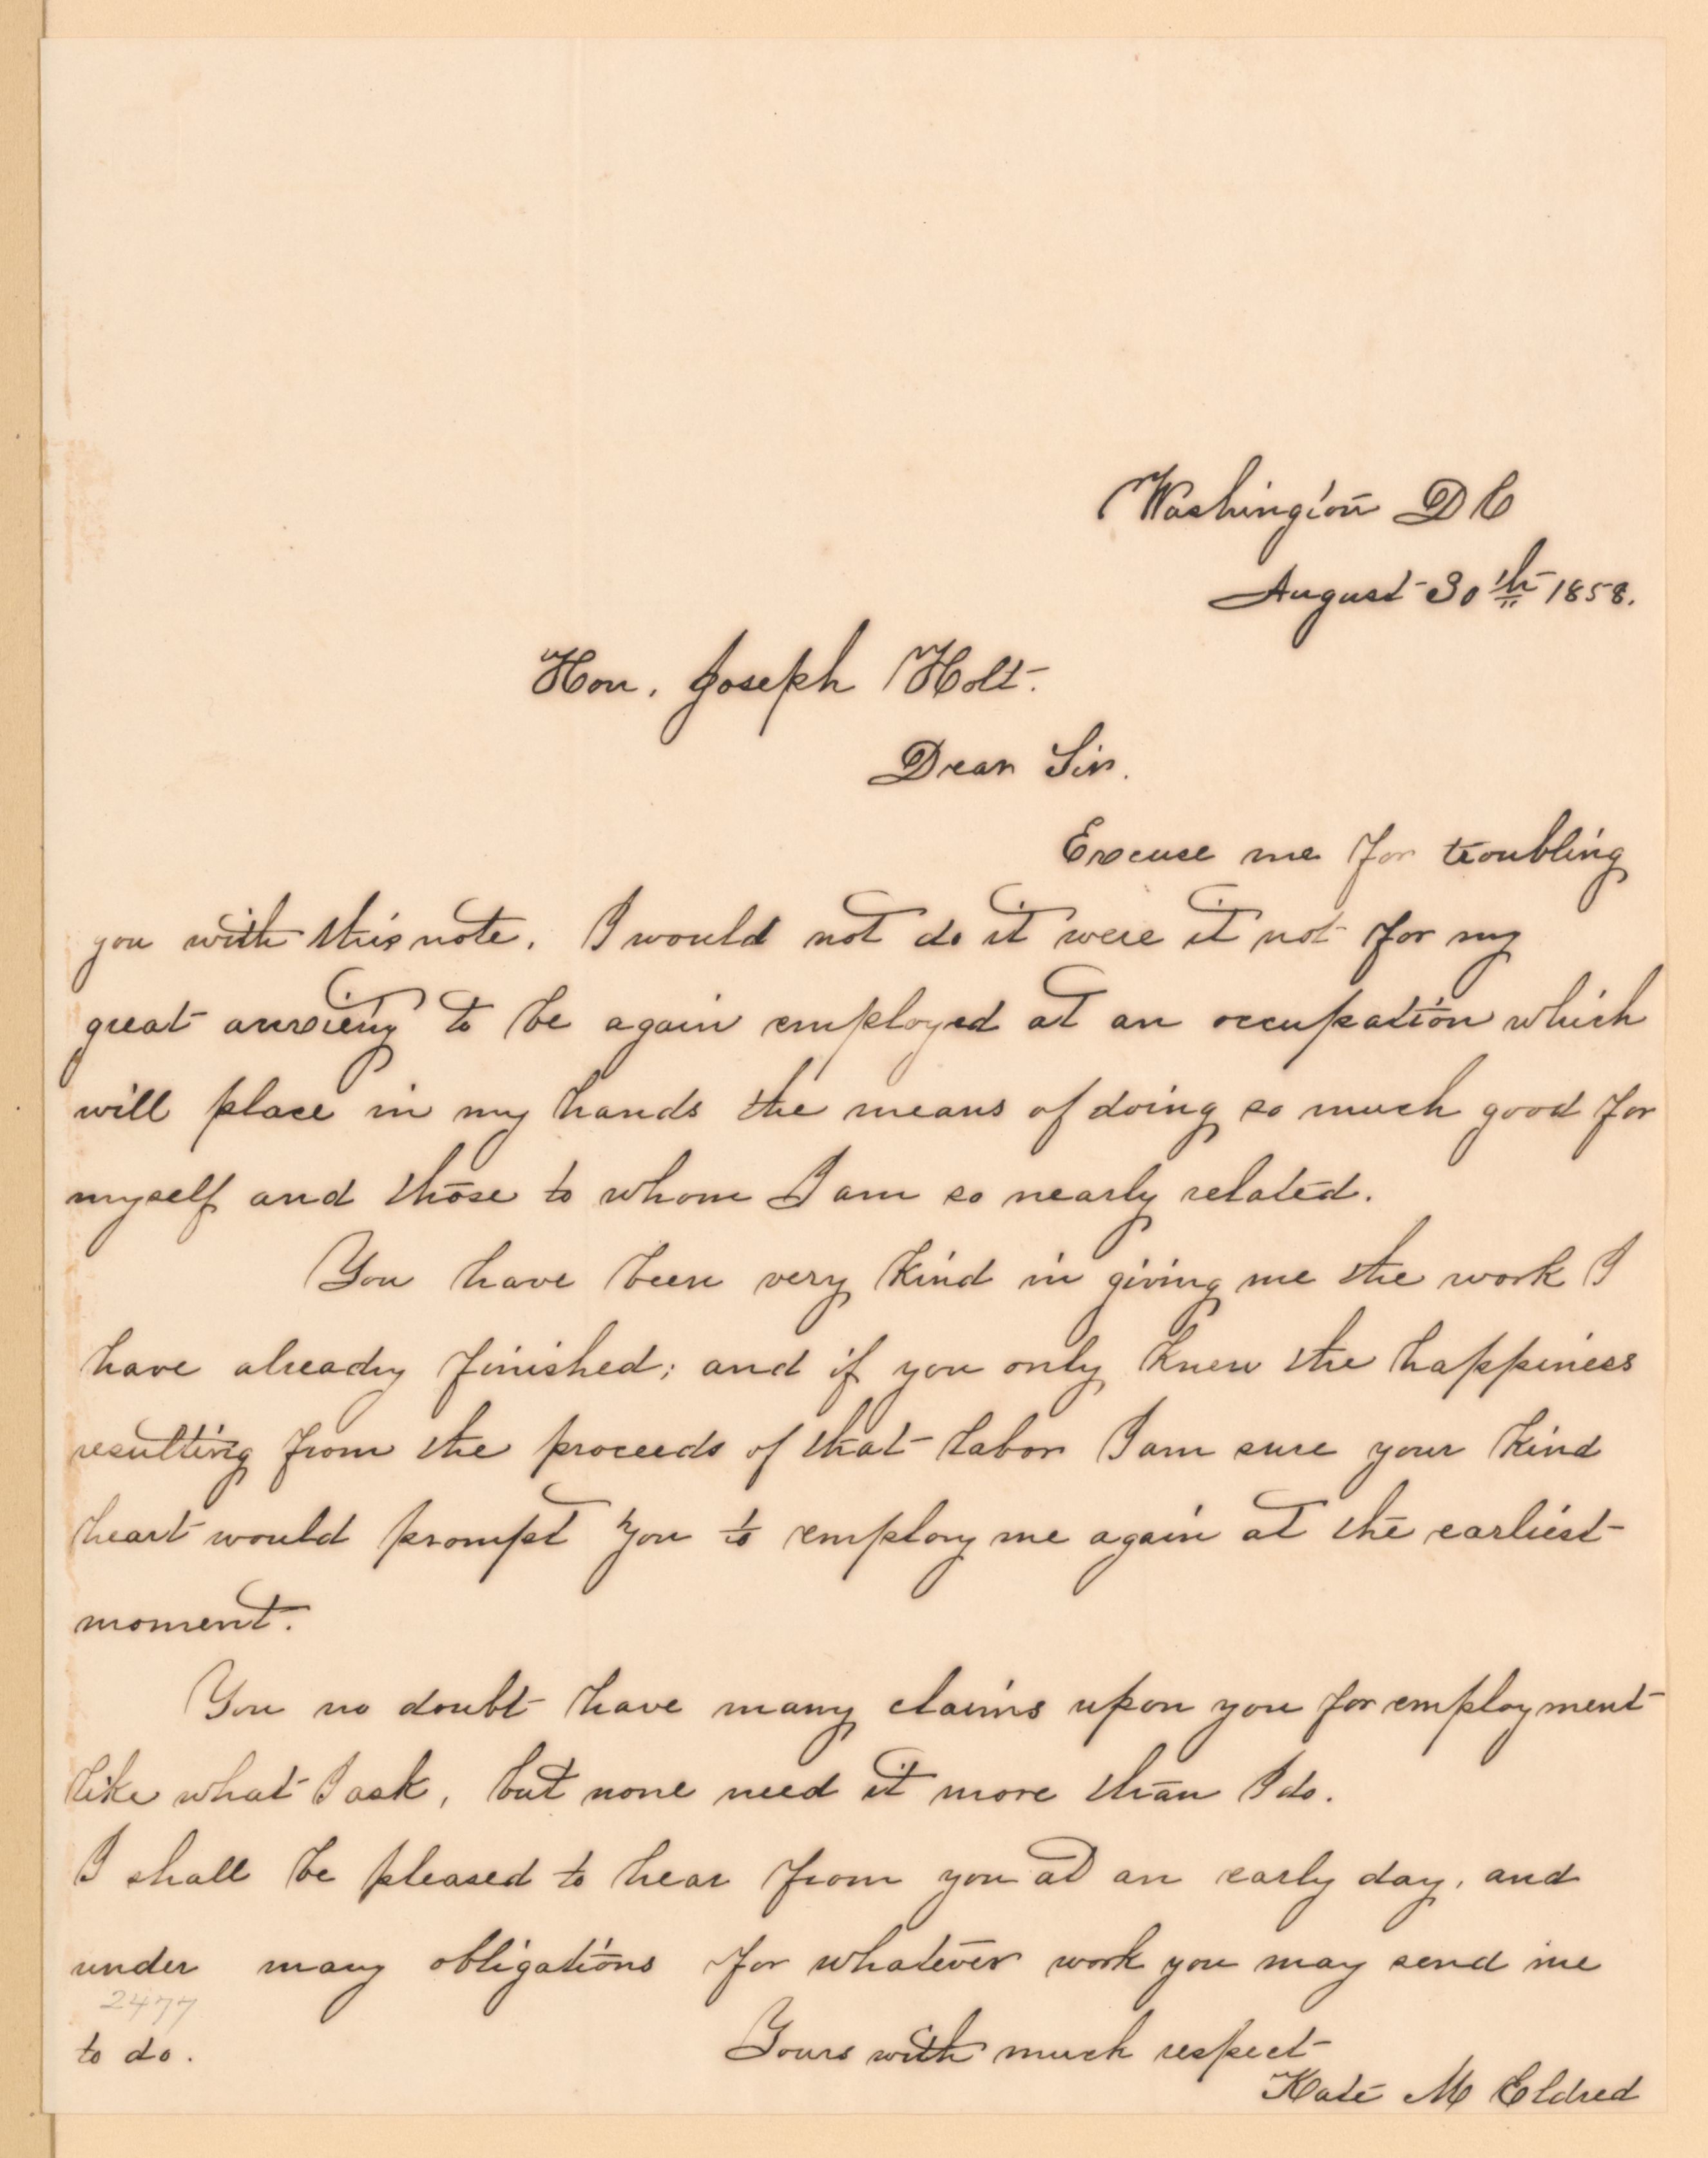 Washington D C
August 30th 1858.
Hon. Joseph Holt.
Dear Sir.
Excuse me for troubling
you with this note. I would not do it were it not for my
great anxiety to be again employed at an occupation which
will place in my hands the means of doing so much good for
myself and those to whom I am so nearly related.
You have been very kind in giving me the work I
have already finished; and if you only knew the happiness
resulting from the proceeds of that labor I am sure your kind
heart would prompt you to employ me again at the earliest
moment.
You no doubt have many claims upon you for employment
like what I ask, but none need it more than I do.
I shall be pleased to hear from you at an early day, and
under many obligations for whatever work you may send me
2477
to do.
Yours with much respect
Kate M Eldred